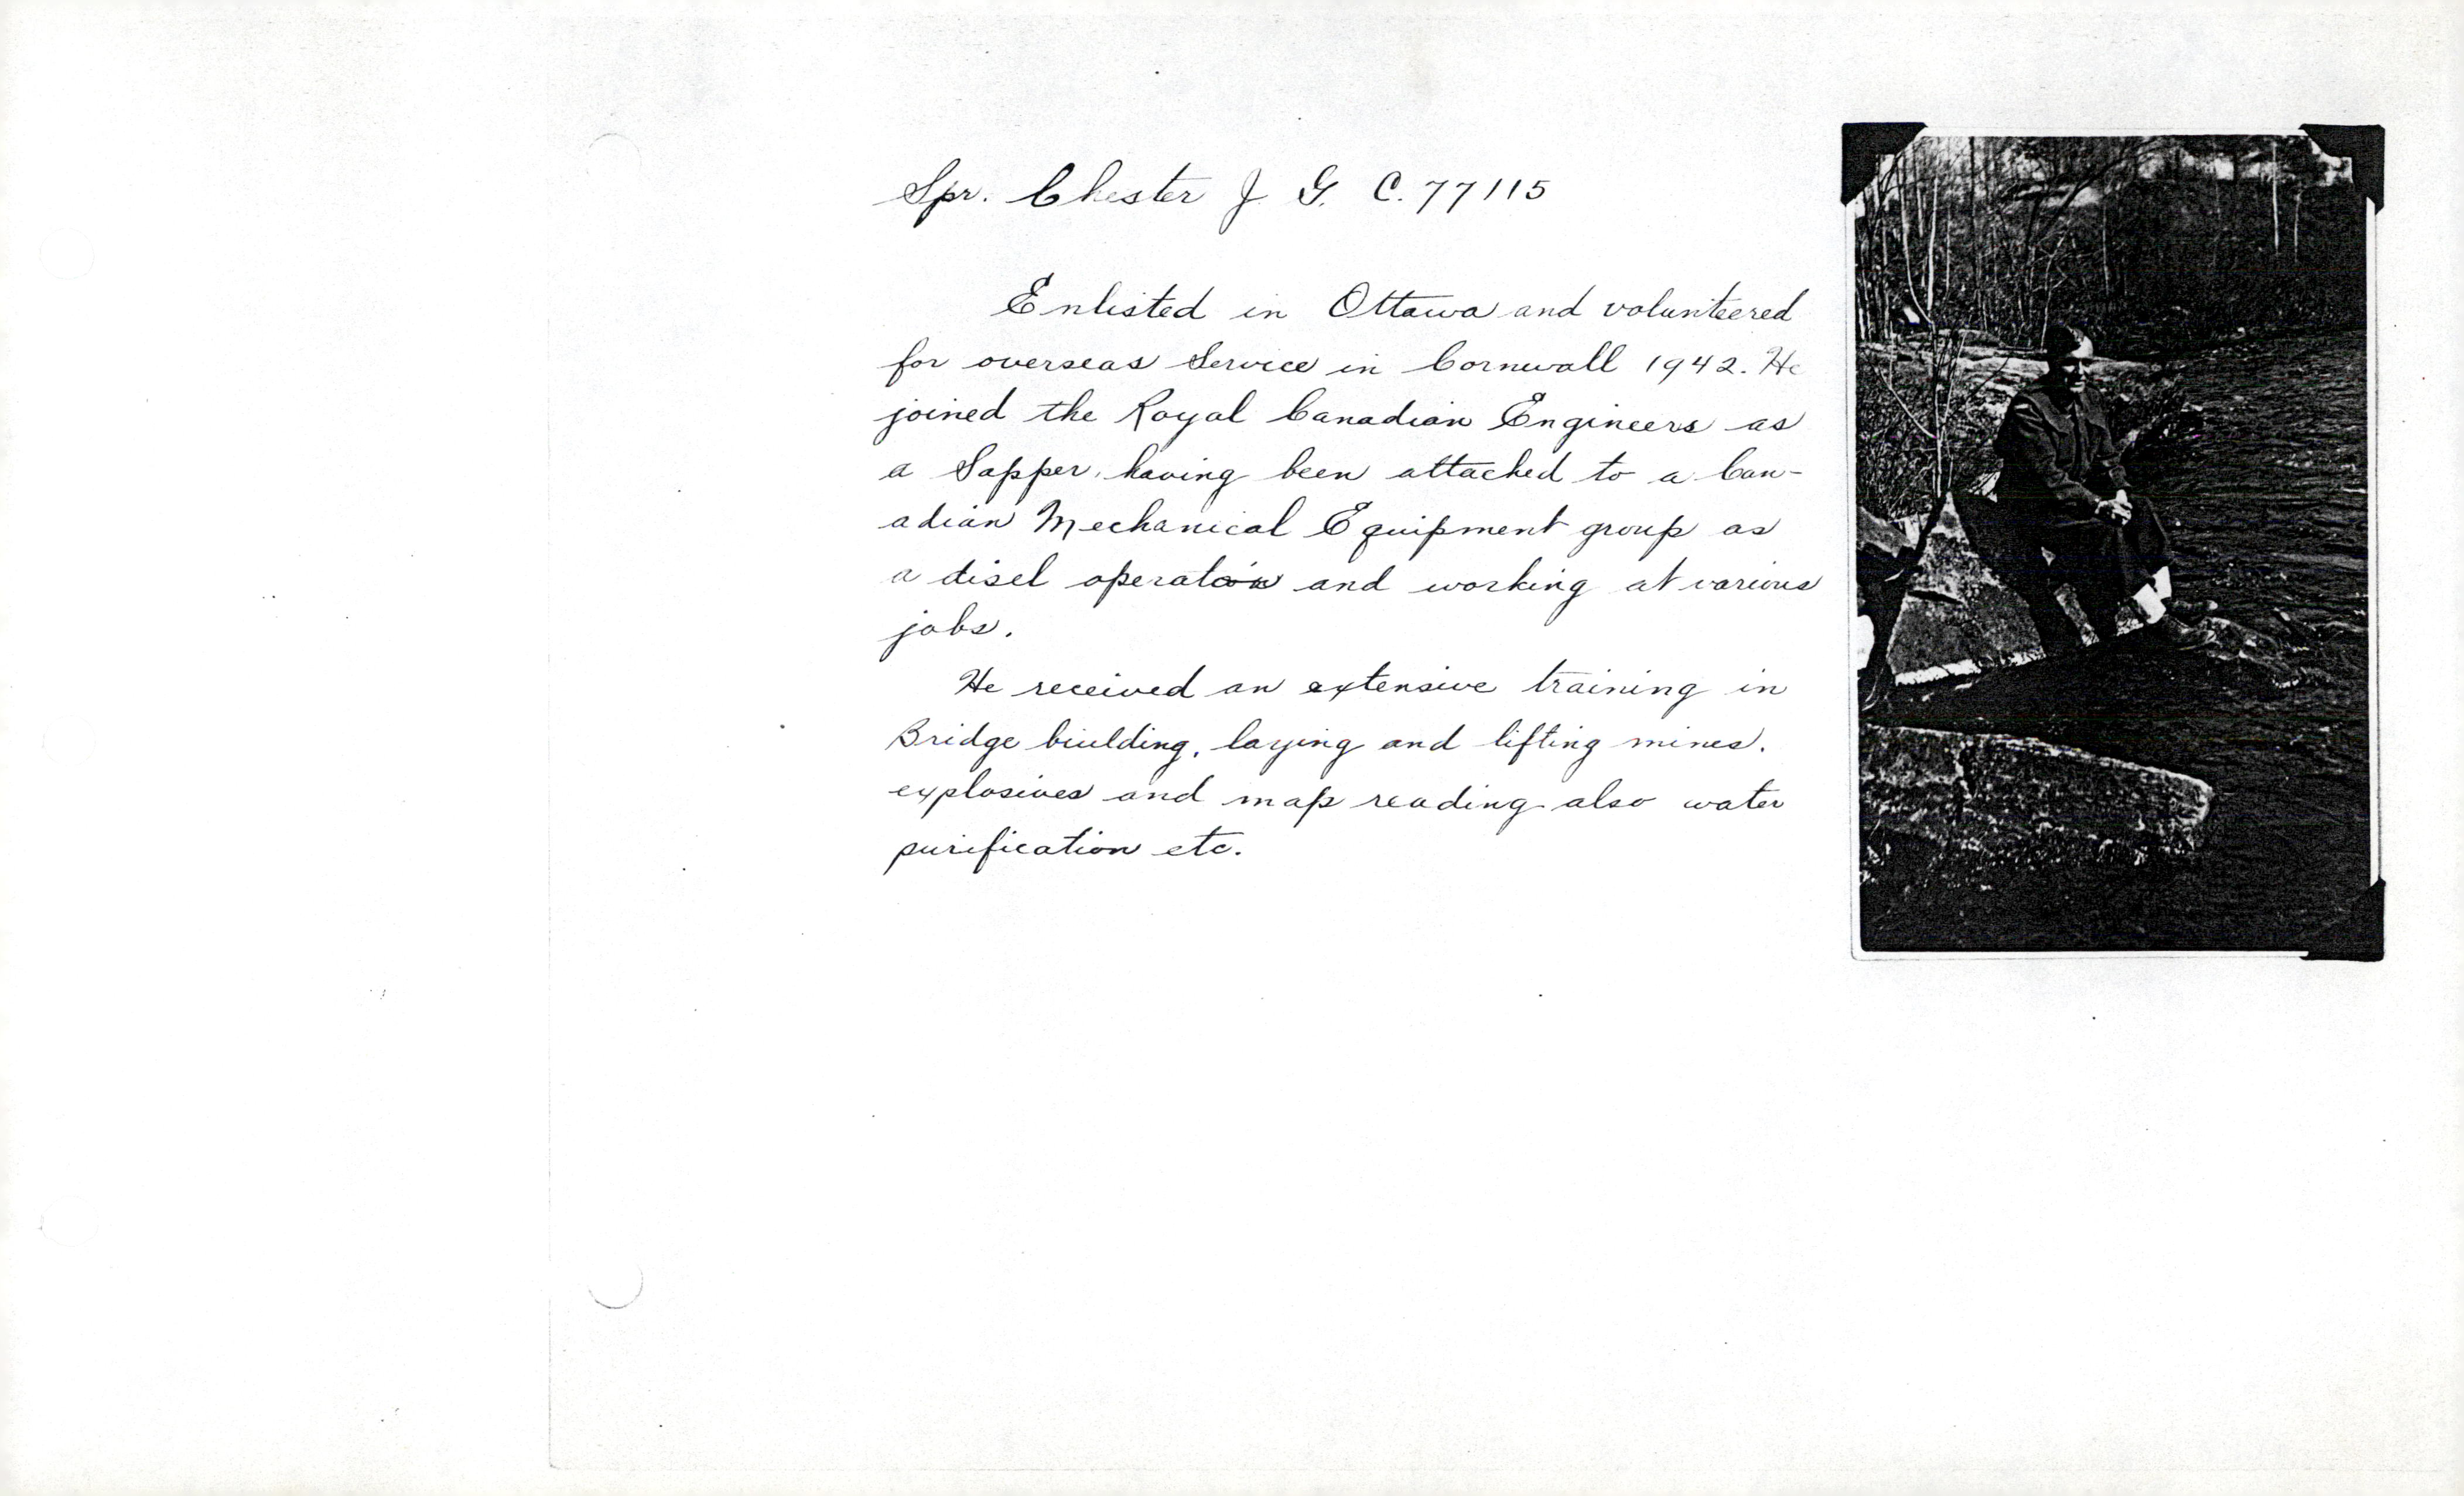 Spr. Chester J. G. C. 77115
Enlisted in Ottawa and volunteered
for overseas Service in Cornwall 1942. He
joined the Royal Canadian Engineers as
a Sapper, having been attached to a Can-
adian Mechanical Equipment group as
a disel operation and working at various
jobs.
He received an extensive training in
Bridge biulding, laying and lifting mines.
explosives and map reading also water
purification etc.